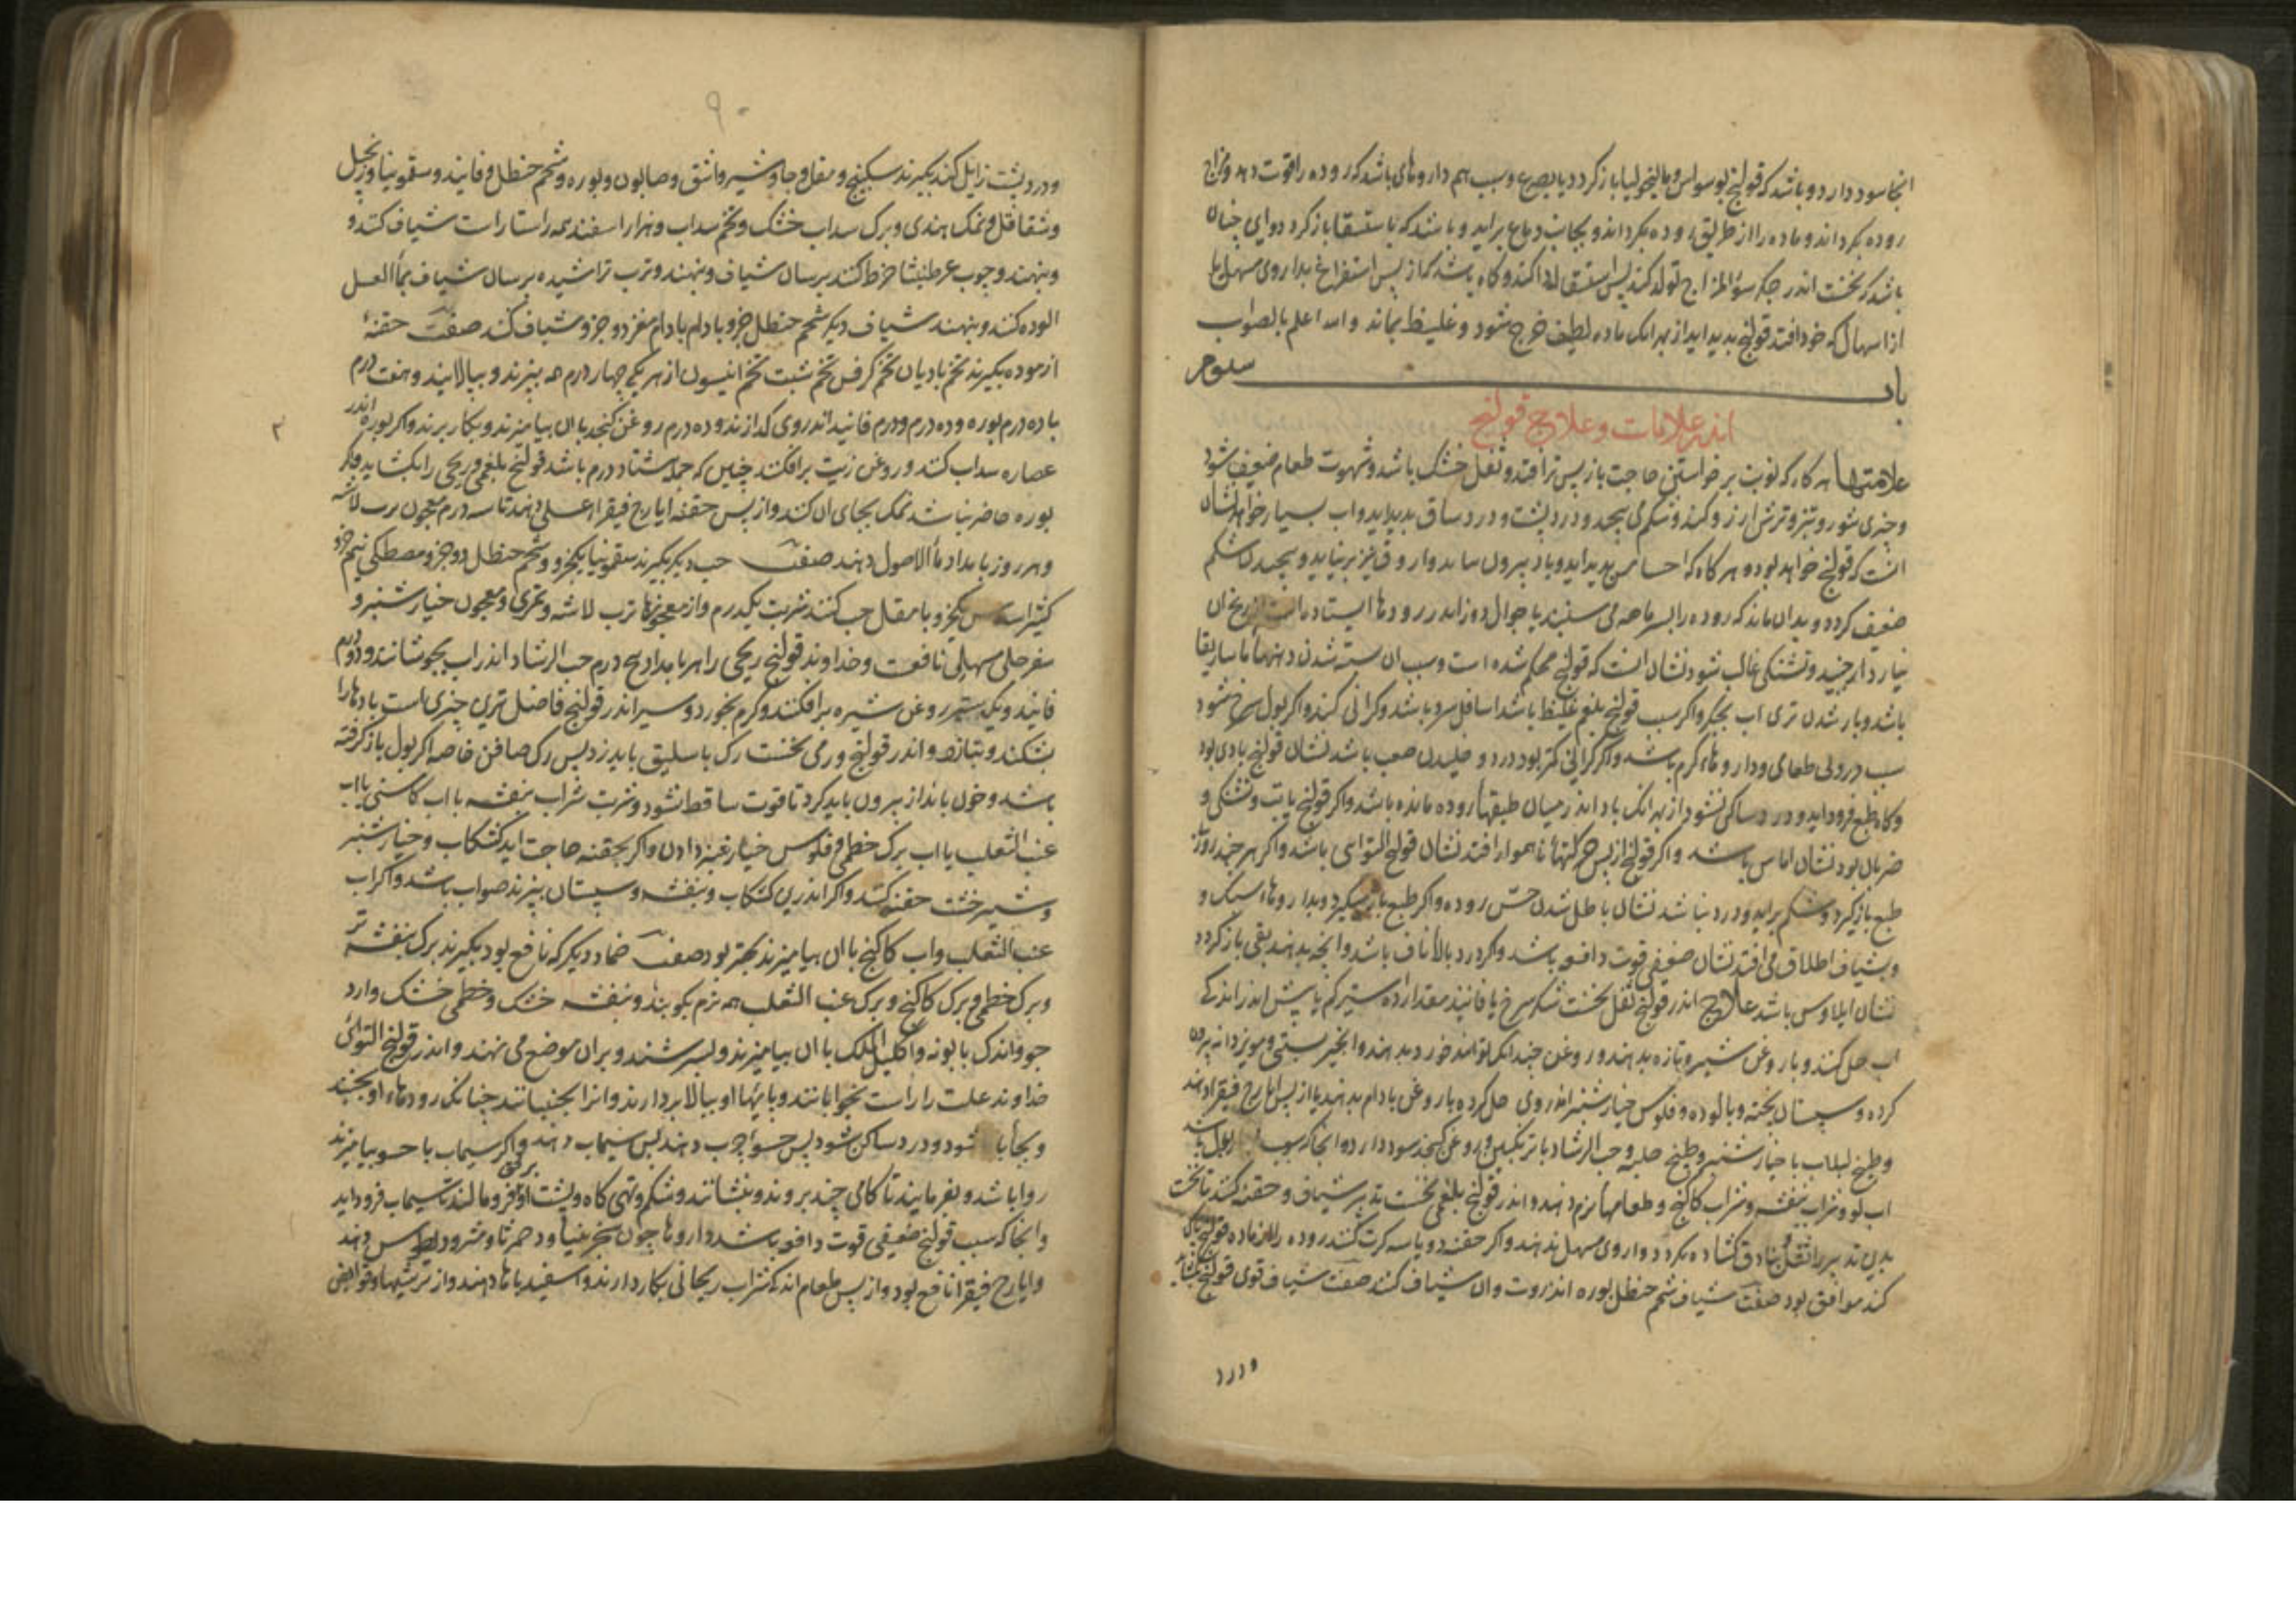 انجا سود دارد و باشد که قولنج بوسواس و مالیخولیا باز کردد یا بصرع و سبب هم داروهای باشد که روده را قوت دهد و مزاج
روده بکرداند و ماده را از طریق روده بکرداند و بجانب دماغ براید و باشد که باستسقا باز کردد و ای جنان
باشد که نخست اندر جکر سوٴ المزاج تولد کند پس استسقا اداکند و کاه باشد کی از پس استفراغ بداروی مسهل یا
از اسهال که خود افتد قولنج بدید اید از بهر انک ماده لطیف خرج شود و غلیظ بماند و الله اعلم بالصواب
باب سوم
اندر علامات و علاج قولنج
علامتها هر کاه که نوبت برخواستن حاجت باز پس تر افتد و ثفل خشک باشد و شهوت طعام ضعیف شود
و جیزی شور و تیز و ترش ارزو کند و شکم می بیجد و درد بشت و درد ساق بدید اید و اب بسیار خواهد نشان
انست که قولنج خواهد بود و هر کاه که احساس بدید اید و باد بیرون نیاید و اروق نیز برنیاید و بیجیدن شکم
ضعیف کردد و بدان ماند که روده را بسرماهه می سنبند یا جوال دوز اندر رودها ایستاده است از رنج ان
نیارد جنبید و تشنکی غالب شود نشان انست که قولنج محکم شده است و سبب ان بسته شدن دهنهاٴ ماساریقا
باشد و باز شدن تری اب بجکر و اکر سبب قولنج بلغم غلیظ باشد اسافل سرد باشد و کرانی کند و اکر بول سرخ شود
سبب درد بی طعامی و داروهاء کرم باشد و اکر کرانی کمتر بود درد و خلیدن صعب باشد نشان قولنج بادی بود
و کاه طبع فرود اید و درد ساکن نشود از بهر انک باد اندر میان طبقهاٴ روده مانده باشد و اکر قولنج با تب و تشنکی و
ضربان بود نشان اماس باشد و اکر قولنج از پس حرکتهاٴ ناهموار افتد نشان قولنج التوایی باشد و اکر هر جند روز
طبع باز کیرد و شکم براید و درد نباشد نشان باطل شدن حس روده و اکر طبع باز میکیرد و بدا روهاء سبک و
و بشیاف اطلاق می افتد نشان ضعیفی قوت دافعه باشد و اکر درد بالاٴ ناف باشد و انجه بدهند بقی باز کردد
نشان ایلاوس باشد علاج اندر قولنج ثفل نخست شکر سرخ یا فانیذ مقدار ده ستیر کم یا بیش اندر اندکی
اب حل کنند و با روغن شیره تازه بدهند و روغن جندانکه تواند خورد بدهند و انجیر بستی و مویز دانه بیرون
کرده و سبستان بخته و بالوده و فلوس خیار شنبر اندر وی حل کرده با روغن بادام بدهند یا از پس ایارج فیقرا دهند
و طبیخ لبلاب با خیار شنبر و طبیخ حلبه و حب الرشاد با ترنکبین و روغن کنجد سود دارد و انجا که سبب بول باشد
اب لو و شراب بنفشه و شراب کاکنج و طعامهاٴ نرم دهند و اندر قولنج بلغمی نخست تدبیر شیاف و حقنه کنند تا نخست
بدین تدبیر راه ثفل بنادق کشاده بکردد و داروی مسهل ندهند و اکر حقنه دو یا سه کرت کنند روده را از ماده قولنج باک
کند موافق بود صفت شیاف شحم حنظل بوره انزروت و ان شیاف کنند صفت شیاف قوی قولنج بکشاید
و درد
۹۰
و درد بشت زایل کند بکیرند سکبینج و مقل و جاوشیر و اشق و صابون و بوره و شحم حنظل و فانیذ و سقمونیا و زنجبیل
و شقاقل و نمک هندی و برک سداب خشک و تخم سداب و هزار اسفند همه راستا راست شیاف کنند و
و بنهند و جوب عرطنیثا خرط کنند برسان شیاف و بنهند و ترب تراشیده برسان شیاف بماٴ العسل
الوده کنند و بنهند شیاف دیکر شحم حنظل جزو بادام بادام مغز دو جزو شیاف کنند صفت حقنهٴ
ازموده بکیرند تخم بادیان تخم کرفس تخم شبت تخم انیسون از هر یکی جهار درم همه ببزند و ببالایند و هفت درم
با ده درم بوره و ده درم و درم فانیذ اندر وی کدازند و ده درم روغن کنجد با ان بیامیزند و بکار برند و اکر بوره اندر
۲
عصاره سداب کنند و روغن زیت برافکنند جنین که جمله هشتاد درم باشد قولنج بلغمی و ریحی را بکشاید و اکر
بوره حاضر نباشد نمک بجای ان کنند و از پس حقنه ایارج فیقرا عسلی دهند تا سه درم معجون ترب لاشه
و هر روز بامداد ماٴ الاصول دهند صفت حب دیکر بکیرند سقمونیا یکجزو و شحم حنظل دو جزو مصطکی نیم جزو
کثیرا یکجزو با مقل حب کنند شربت یکدرم و از معجونها ترب لاشه و تمری و معجون خیار شنبر و
سفرجلی مسهلی نافعست و خداوند قولنج ریحی را هر بامداد پنج درم حب الرشاد اندر اب بجوشانند و دو درم
فانیذ و یک ستیر روغن شیره برافکنند و کرم بخورد و سیر اندر قولنج فاضل ترین جیزی است بادها را
بشکند و بتازه و اندر قولنج ورمی نخست رک باسلیق باید زد پس رک صافن خاصه اکر بول باز کرفته
باشد و خون باندازه بیرون باید کرد تا قوت ساقط نشود و شربت شراب بنفشه با اب کاسنی با اب
عنب الثعلب یا اب برک خطمی و فلوس خیار شنبر دادن و اکر بحقنه حاجت اید کشکاب و خیار شنبر
و شیرخشت حقنه کنند و اکر اندرین کشکاب و بنفشه و سبستان ببزند صواب باشد و اکر اب
عنب الثعلب و اب کاکنج با ان بیامیزند بهتر بود صفت ضماد دیکر که نافع بود بکیرند برک بنفشه تر
و برک خطمی و برک کاکنج و برک عنب الثعلب همه نرم بکوبند و بنفشه خشک و خطمی خشک و ارد
جو و اندک بابونه و اکلیل الملک با ان بیامیزند و بسرشند و بران موضع می نهند و اندر قولنج التوائی
خداوند علت را راست بخوابانند و بایهاٴ او ببالا بردارند و انرا بجنبانند جنانک رودهاء او بجنبد
و بجای باز شود و درد ساکن شود پس حسواٴ جرب دهند پس سیماب دهند و اکر سیماب با حسو بیامیزند
روا باشد و بفرمایند تا کامی جند برود و بنشانند و شکم و تهی کاه و بشت او برفق فرو مالند تا سیماب فرود اید
و انجا که سبب قولنج ضعیفی قوت دافعه باشد داروها جون سجزنیا و دحمرثا و مثرودیطوس دهند
و ایارج فیقرا نافع بود و از پس طعام اندک شراب ریحانی بکار دارند و اسفیدباها دهند و از ترشیها و قوابض